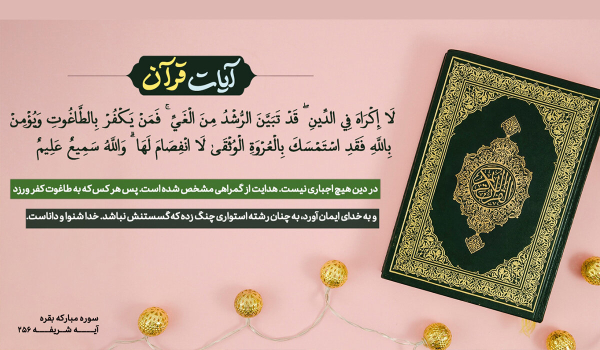 آیات قرآن
لَا إِكْرَاهَ فِي الدِّينِ ۖ قَدْ تَبَيَّنَ الرُّشْدُ مِنَ الْغَيِّ ۚ فَمَنْ يَكْفُرْ بِالطَّاغُوتِ وَيُؤْمِنْ
بِاللَّهِ فَقَدِ اسْتَمْسَكَ بِالْعُرْوَةِ الْوُثْقَىٰ لَا انْفِصَامَ لَهَا ۗ وَاللَّهُ سَمِيعٌ عَلِيمٌ
در دین هیچ اجباری نیست. هدایت از گمراهی مشخص شده است. پس هر کس که به طاغوت کفر ورزد
و به خدای ایمان آورد، به چنان رشته استواری چنگ زده که گسستنش نباشد. خدا شنوا و داناست.
سوره مبارکه بقره
آیـــه شـریـفـــه ۲۵۶